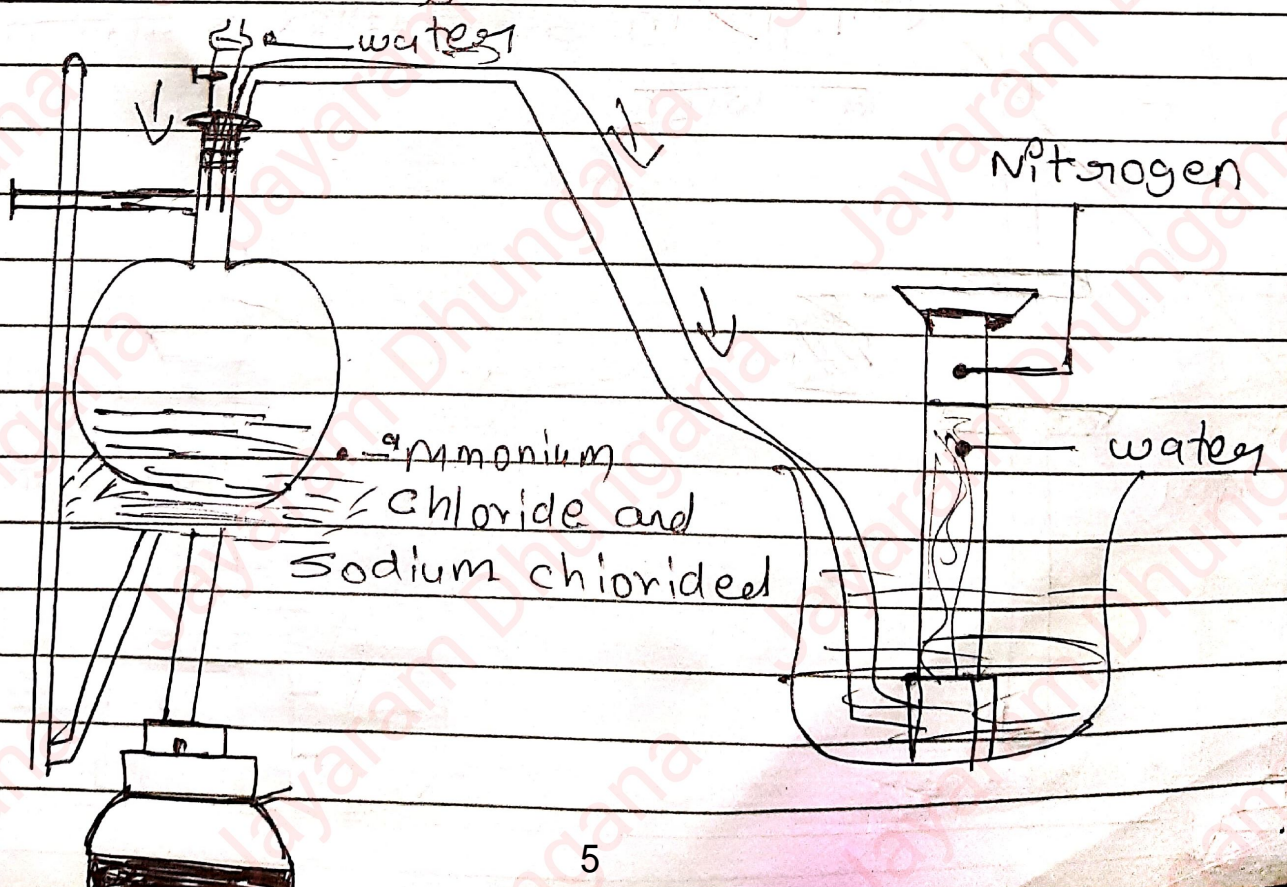 water
Nitrogen
water
Ammonium
Chloride and
Sodium chiorided
5
Jayaram Dhungana